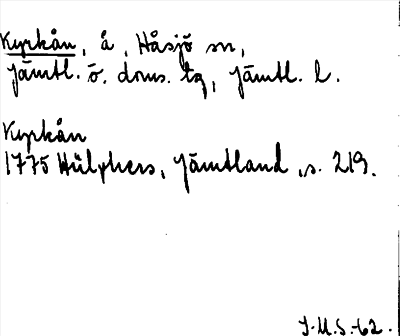 Kyrkån, å, Håsjö sn,
Jämtl. ö. doms. tg, Jämtl. l.
Kyrkån
1775 Hülphers, Jämtland, s. 219.
J.M.S.-62.